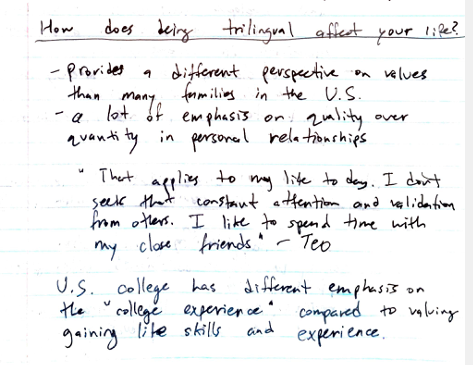 How does being trilingual affect your life?
- Provides a different perspective on values
than many families in the U.S.
- a lot of emphasis on quality over
quantity in personal relationships
"That applies to my life today. I don't
seek that constant attention and validation
from others. I like to spend time with
my close friends" - Teo
U.S. college has different emphasis on
the "college experience" compared to valuing
gaining life skills and experience.